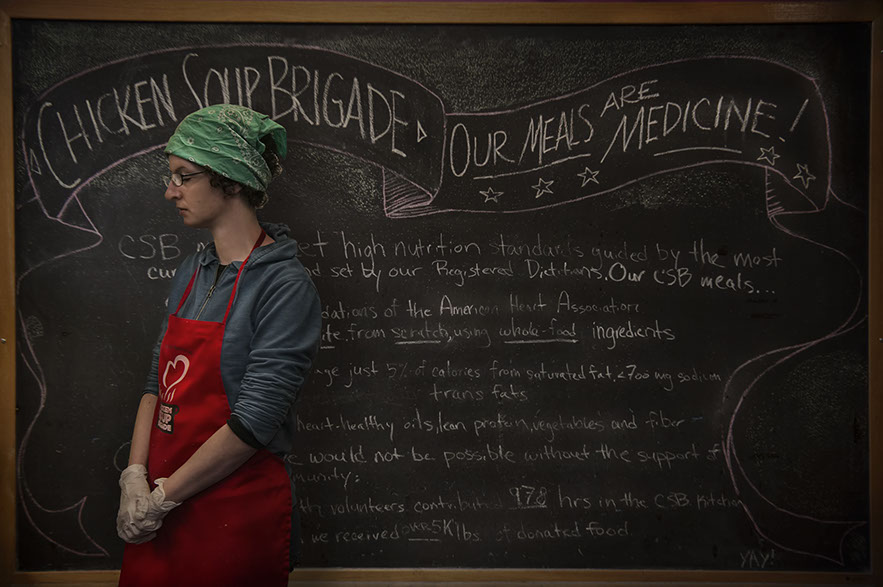 CHICKEN SOUP BRIGADE
OUR MEALS ARE MEDICINE!
CSB et high nutrition standards guided by the most
cur d set by our Registered Dietitians. Our CSB meals...
dations of the American Heart Association
from scratch, using whole-food ingredients
ge just 5% of calories from saturated fat, <700 mg sodium
trans fats
heart-healthy oils, lean protein, vegetables and fiber -
would not be possible without the support of
munity:
volunteers contributed 978 hrs in the CSB Kitchen
we received OVER 5K lbs of donated food
YAY!